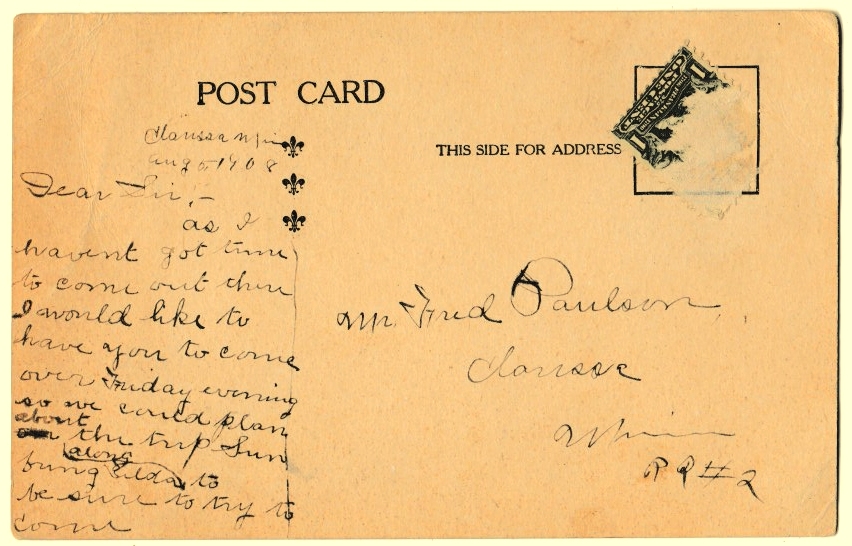 POST CARD
THIS SIDE FOR ADDRESS
Clarissa Minn
Aug 5 1908
Dear Sir,-
as I
havent got time
to come out there
I would like to
have you to come
over Friday evening
so we could plan
about
the trip Sun
along
bring Elda to
be sure to try to
come
Mr. Fred Paulson,
Clarissa
Minn
R R #2